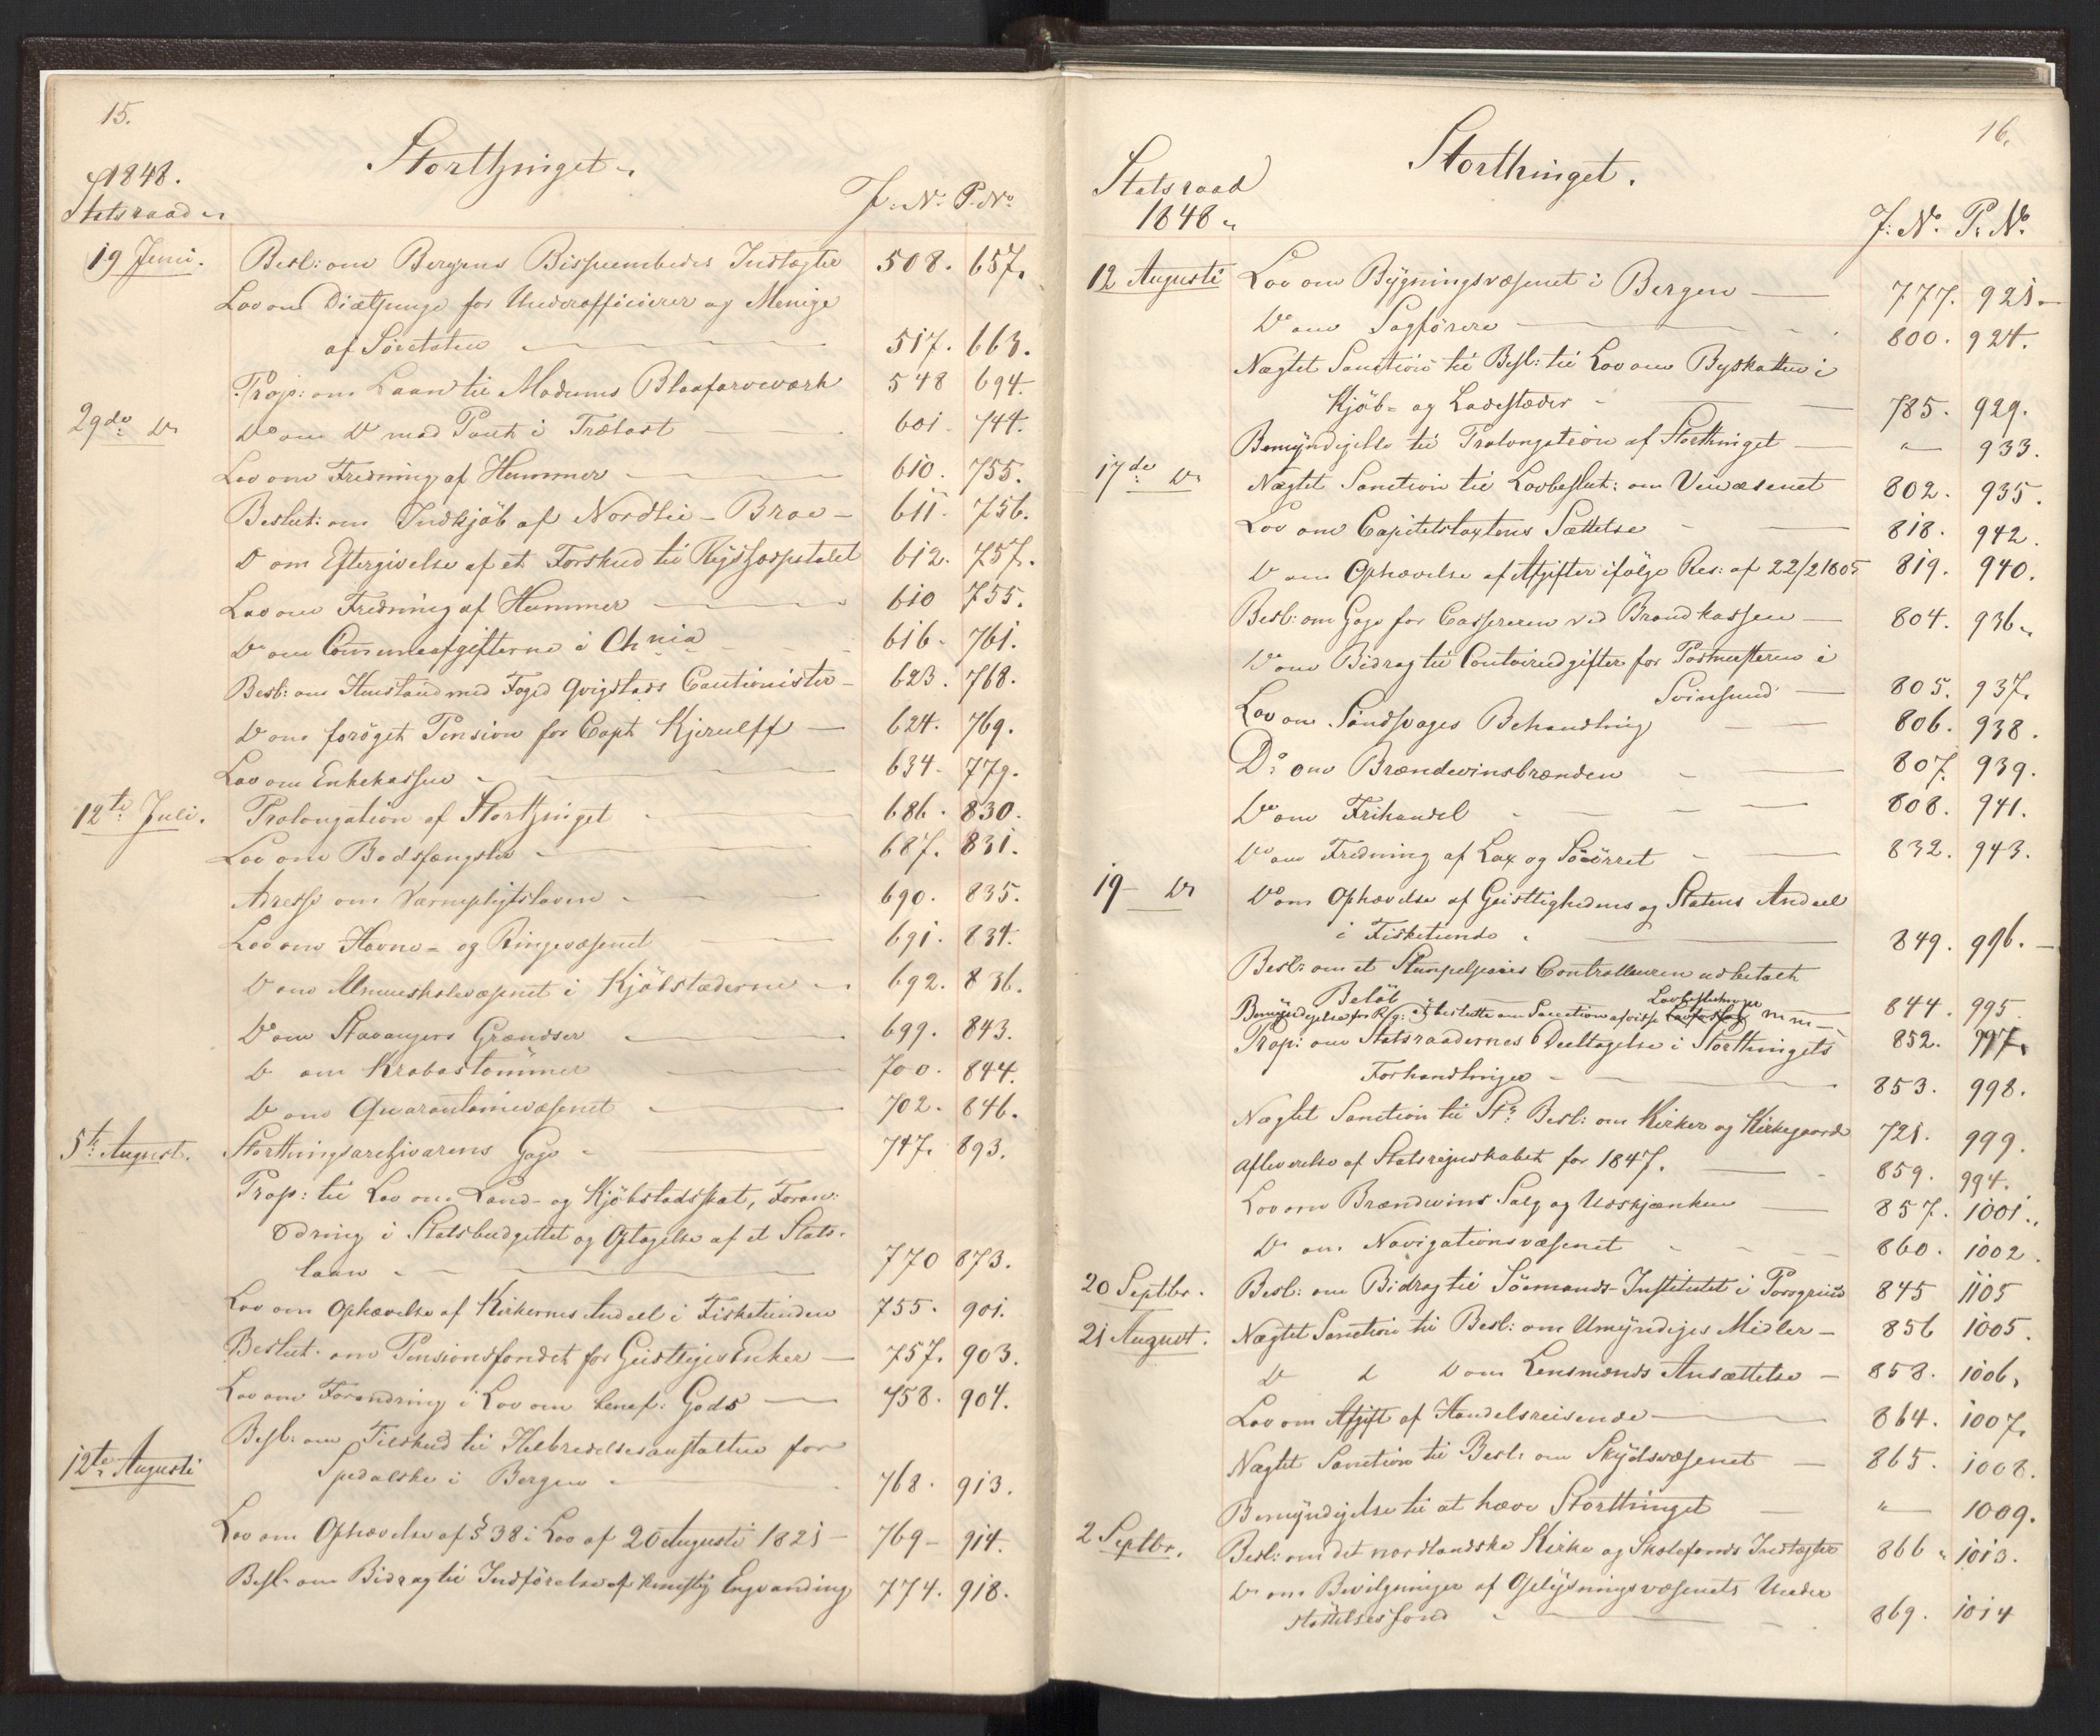 15.
1848.
Statsraad
Storthinget.
J: No. P. No.
19 Juni. Besl: om Bergens Bispeembedes Indtægter 508. 657.
Lov om Diætpenge for Underofficierer og Menige
af Söetaten 517. 663.
Prop: om Laan til Modums Blaafarveværk 548 694.
29de Do Do om Do mod Pant i Trælast 601. 744.
Lov om Fredning af Hummer 610. 755.
Beslut: om Indkjöb af Nordlie-Broe 611. 756.
Do om Eftergivelse af et Forskud til Rigshospitalet 612. 757.
Lov om Fredning af Hummer 610 755.
Do om Communeafgifterne i Chnia 616. 761.
Besl: om Henstand med Foged Qvigstads Cautionister 623. 768.
Do om foröget Pension for Capt Kjerulff 624. 769.
Lov om Enkekassen 634. 779.
12te Juli. Prolongation af Storthinget 686. 830.
Lov om Bodsfængsler 687. 831.
Adresse om Værnepligtsloven 690. 835.
Lov om Havne- og Ringevæsenet 691. 834.
Do om Almueskolevæsenet i Kjöbstæderne 692. 836.
Do om Stavangers Grændser 699. 843.
Do om Krabastömmer 700. 844.
Do om Quarantainevæsenet 702. 846.
5te August. Storthingsarchivarens Gage 747. 893.
Prop: til Lov om Land- og Kjöbstadskat, Foran-
dring i Statsbudgettet og Optagelse af et Stats-
laan 770 873.
Lov om Ophævelse af Kirkernes Andeel i Fisketienden 755. 901.
Beslut. om Pensionsfondet for Geistliges Enker 757. 903.
Lov om Forandring i Lov om benef: Gods 758. 904.
Besl: om Tilskud til Helbredelsesanstalten for
12te Augusti Spedalske i Bergen 768. 913.
Lov om Ophævelse af § 38 i Lov af 20 Augusti 1821 769 914.
Besl. om Bidrag til Indförelse af kunstig Engvanding 774. 918.
16.
Statsraad
1848
Storthinget.
J: No. P. No.
12 Augusti Lov om Bygningsvæsenet i Bergen 777. 921
Do om Sagförere 800. 924.
Nægtet Sanction til Besl: til Lov om Byskatten i
Kjöb- og Ladestæder 785. 929.
Bemyndigelse til Prolongation af Storthinget " 933.
17de Do Nægtet Sanction til Lovbeslut: om Veivæsenet 802. 935.
Lov om Capitelstaxtens Sættelse 818. 942.
Do om Ophævelse af Afgifter ifölge Res: af 22/2 1805 819. 940.
Besl: om Gage for Cassereren ved Brandkassen 804. 936.
Do om Bidrag til Contoirudgifter for Postmesteren i
Svinesund 805. 937.
Lov om Sandsvages Behandling 806. 938.
Do om Brændevinsbrænden 807. 939.
Do om Frihandel 808. 941.
Do om Fredning af Lax og Söörret 832. 943.
19 Do Do om Ophævelse af Geistlighedens og Statens Andeel
i Fisketiende 849. 996.
Besl: om et Stempelpapirs Controlleuren udbetalt
Belöb 844. 995.
Lovbeslutninger
Bemyndigelse for Rg: at beslutte om Sanction af visse m m 852. 997.
Prop: om Statsraadernes Deeltagelse i Storthingets
Forhandlinger 853. 998.
Nægtet Sanction til St: Besl: om Kirker og Kirkegaarde 721. 999.
Afleverelse af Statsregnskabet for 1847. 859. 994.
Lov om Brændeviins Salg og Udskjænken 857. 1001.
Do om Navigationsvæsenet 860. 1002.
20 Septbr. Besl: om Bidrag til Sömands-Institutet i Porsgrund 845 1105
21 August. Nægtet Sanction til Besl: om Umyndiges Midler 856 1005.
Do Do Do om Lensmænds Ansættelse 858. 1006.
Lov om Afgift af Handelsreisende 864. 1007.
Nægtet Sanction til Besl: om Skydsvæsenet 865. 1008.
Bemyndigelse til at hæve Storthinget " 1009.
2 Septbr. Besl: om det nordlandske Kirke og Skolefonds Indtægter 866. 1013.
Do om Bevilgninger af Oplysningsvæsenets Under
stöttelsesfond 869. 1014